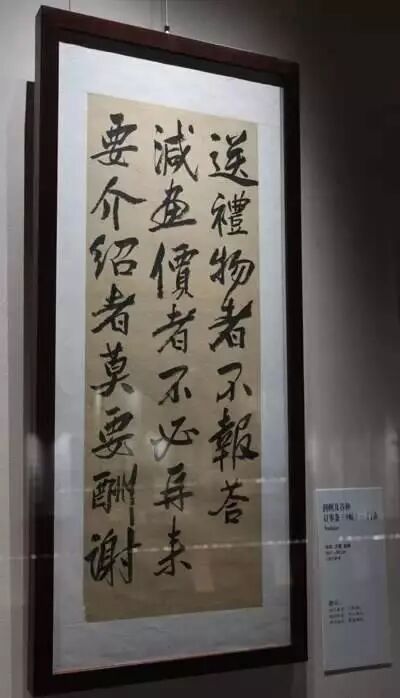 送禮物者不報荅
減畫價者不必再来
要介绍者莫要酬谢